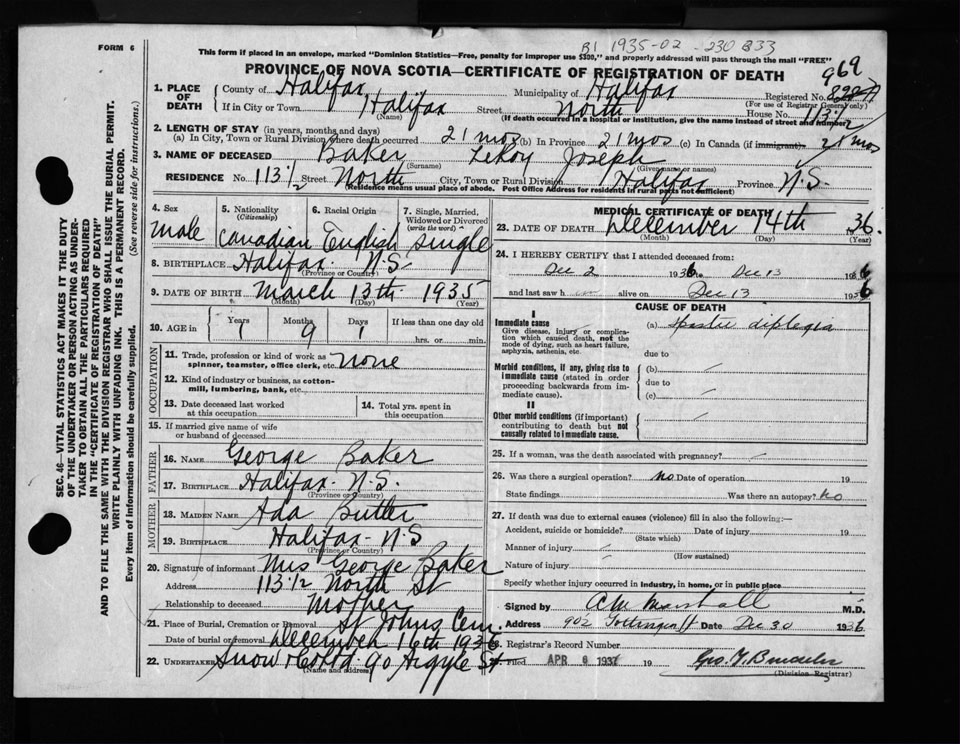 B1 1935-02-230833
FORM 6
This form if placed in an envelope, marked "Dominion Statistics—Free, penalty for improper use $300," and properly addressed will pass through the mail "FREE"
PROVINCE OF NOVA SCOTIA—CERTIFICATE OF REGISTRATION OF DEATH
969
1. PLACE OF DEATH County of Halifax Municipality of Halifax Registered No.
(For use of Registrar General only)
If in City or Town Halifax Street North House No. 113½
(Name) (If death occurred in a hospital or institution, give the name instead of street and number)
2. LENGTH OF STAY (in years, months and days)
(a) In City, Town or Rural Division where death occurred 21 mos (b) In Province 21 mos (c) In Canada (if immigrant) 21 mos
3. NAME OF DECEASED Baker LeRoy Joseph
(Surname) (Given name or names)
RESIDENCE No. 113½ Street North City, Town or Rural Division Halifax Province N.S.
(Residence means usual place of abode. Post Office Address for residents in rural parts not sufficient)
4. Sex male
5. Nationality (Citizenship) Canadian
6. Racial Origin English
7. Single, Married, Widowed or Divorced (write the word) Single
8. BIRTHPLACE Halifax N.S.
(Province or Country)
9. DATE OF BIRTH March 13th 1935
(Month) (Day) (Year)
10. AGE in Years 1 Months 9 Days 1 If less than one day old
hrs. or min.
OCCUPATION
11. Trade, profession or kind of work as spinner, teamster, office clerk, etc. none
12. Kind of industry or business, as cotton-mill, lumbering, bank, etc.
13. Date deceased last worked at this occupation
14. Total yrs. spent in this occupation
15. If married give name of wife or husband of deceased
FATHER
16. NAME George Baker
17. BIRTHPLACE Halifax N.S.
(Province or Country)
MOTHER
18. MAIDEN NAME Ada Butler
19. BIRTHPLACE Halifax N.S
(Province or Country)
20. Signature of informant Mrs George Baker
Address 113½ North St
Relationship to deceased Mother
21. Place of Burial, Cremation or Removal St Johns Cem.
Date of burial or removal December 16th 1936
22. UNDERTAKER Snow & Co Ltd 90 Argyle St
(Name and address)
MEDICAL CERTIFICATE OF DEATH
23. DATE OF DEATH December 14th 36.
(Month) (Day) (Year)
24. I HEREBY CERTIFY that I attended deceased from:
Dec 2 1936 to Dec 13 1936
and last saw h im alive on Dec 13 1936
CAUSE OF DEATH
I
Immediate cause
Give disease, injury or complication which caused death, not the mode of dying, such as heart failure, asphyxia, asthenia, etc.
(a) Spastic diplegia
due to
Morbid conditions, if any, giving rise to immediate cause (stated in order proceeding backwards from immediate cause).
(b)
due to
(c)
II
Other morbid conditions (if important) contributing to death but not causally related to immediate cause.
25. If a woman, was the death associated with pregnancy?
26. Was there a surgical operation? No Date of operation 19
State findings Was there an autopsy? No
27. If death was due to external causes (violence) fill in also the following:—
Accident, suicide or homicide? Date of injury 19
(State which)
Manner of injury
(How sustained)
Nature of injury
Specify whether injury occurred in industry, in home, or in public place
Signed by A M Marshall M.D.
Address 902 Gottingen St Date Dec 30 1936
28. Registrar's Record Number
Filed APR 9 1937 19
(Division Registrar)
SEC. 46—VITAL STATISTICS ACT MAKES IT THE DUTY
OF THE UNDERTAKER OR PERSON ACTING AS UNDER-
TAKER TO OBTAIN ALL THE PARTICULARS REQUIRED
IN THE "CERTIFICATE OF REGISTRATION OF DEATH"
AND TO FILE THE SAME WITH THE DIVISION REGISTRAR WHO SHALL ISSUE THE BURIAL PERMIT.
WRITE PLAINLY WITH UNFADING INK. THIS IS A PERMANENT RECORD.
Every item of information should be carefully supplied.
(See reverse side for instructions.)